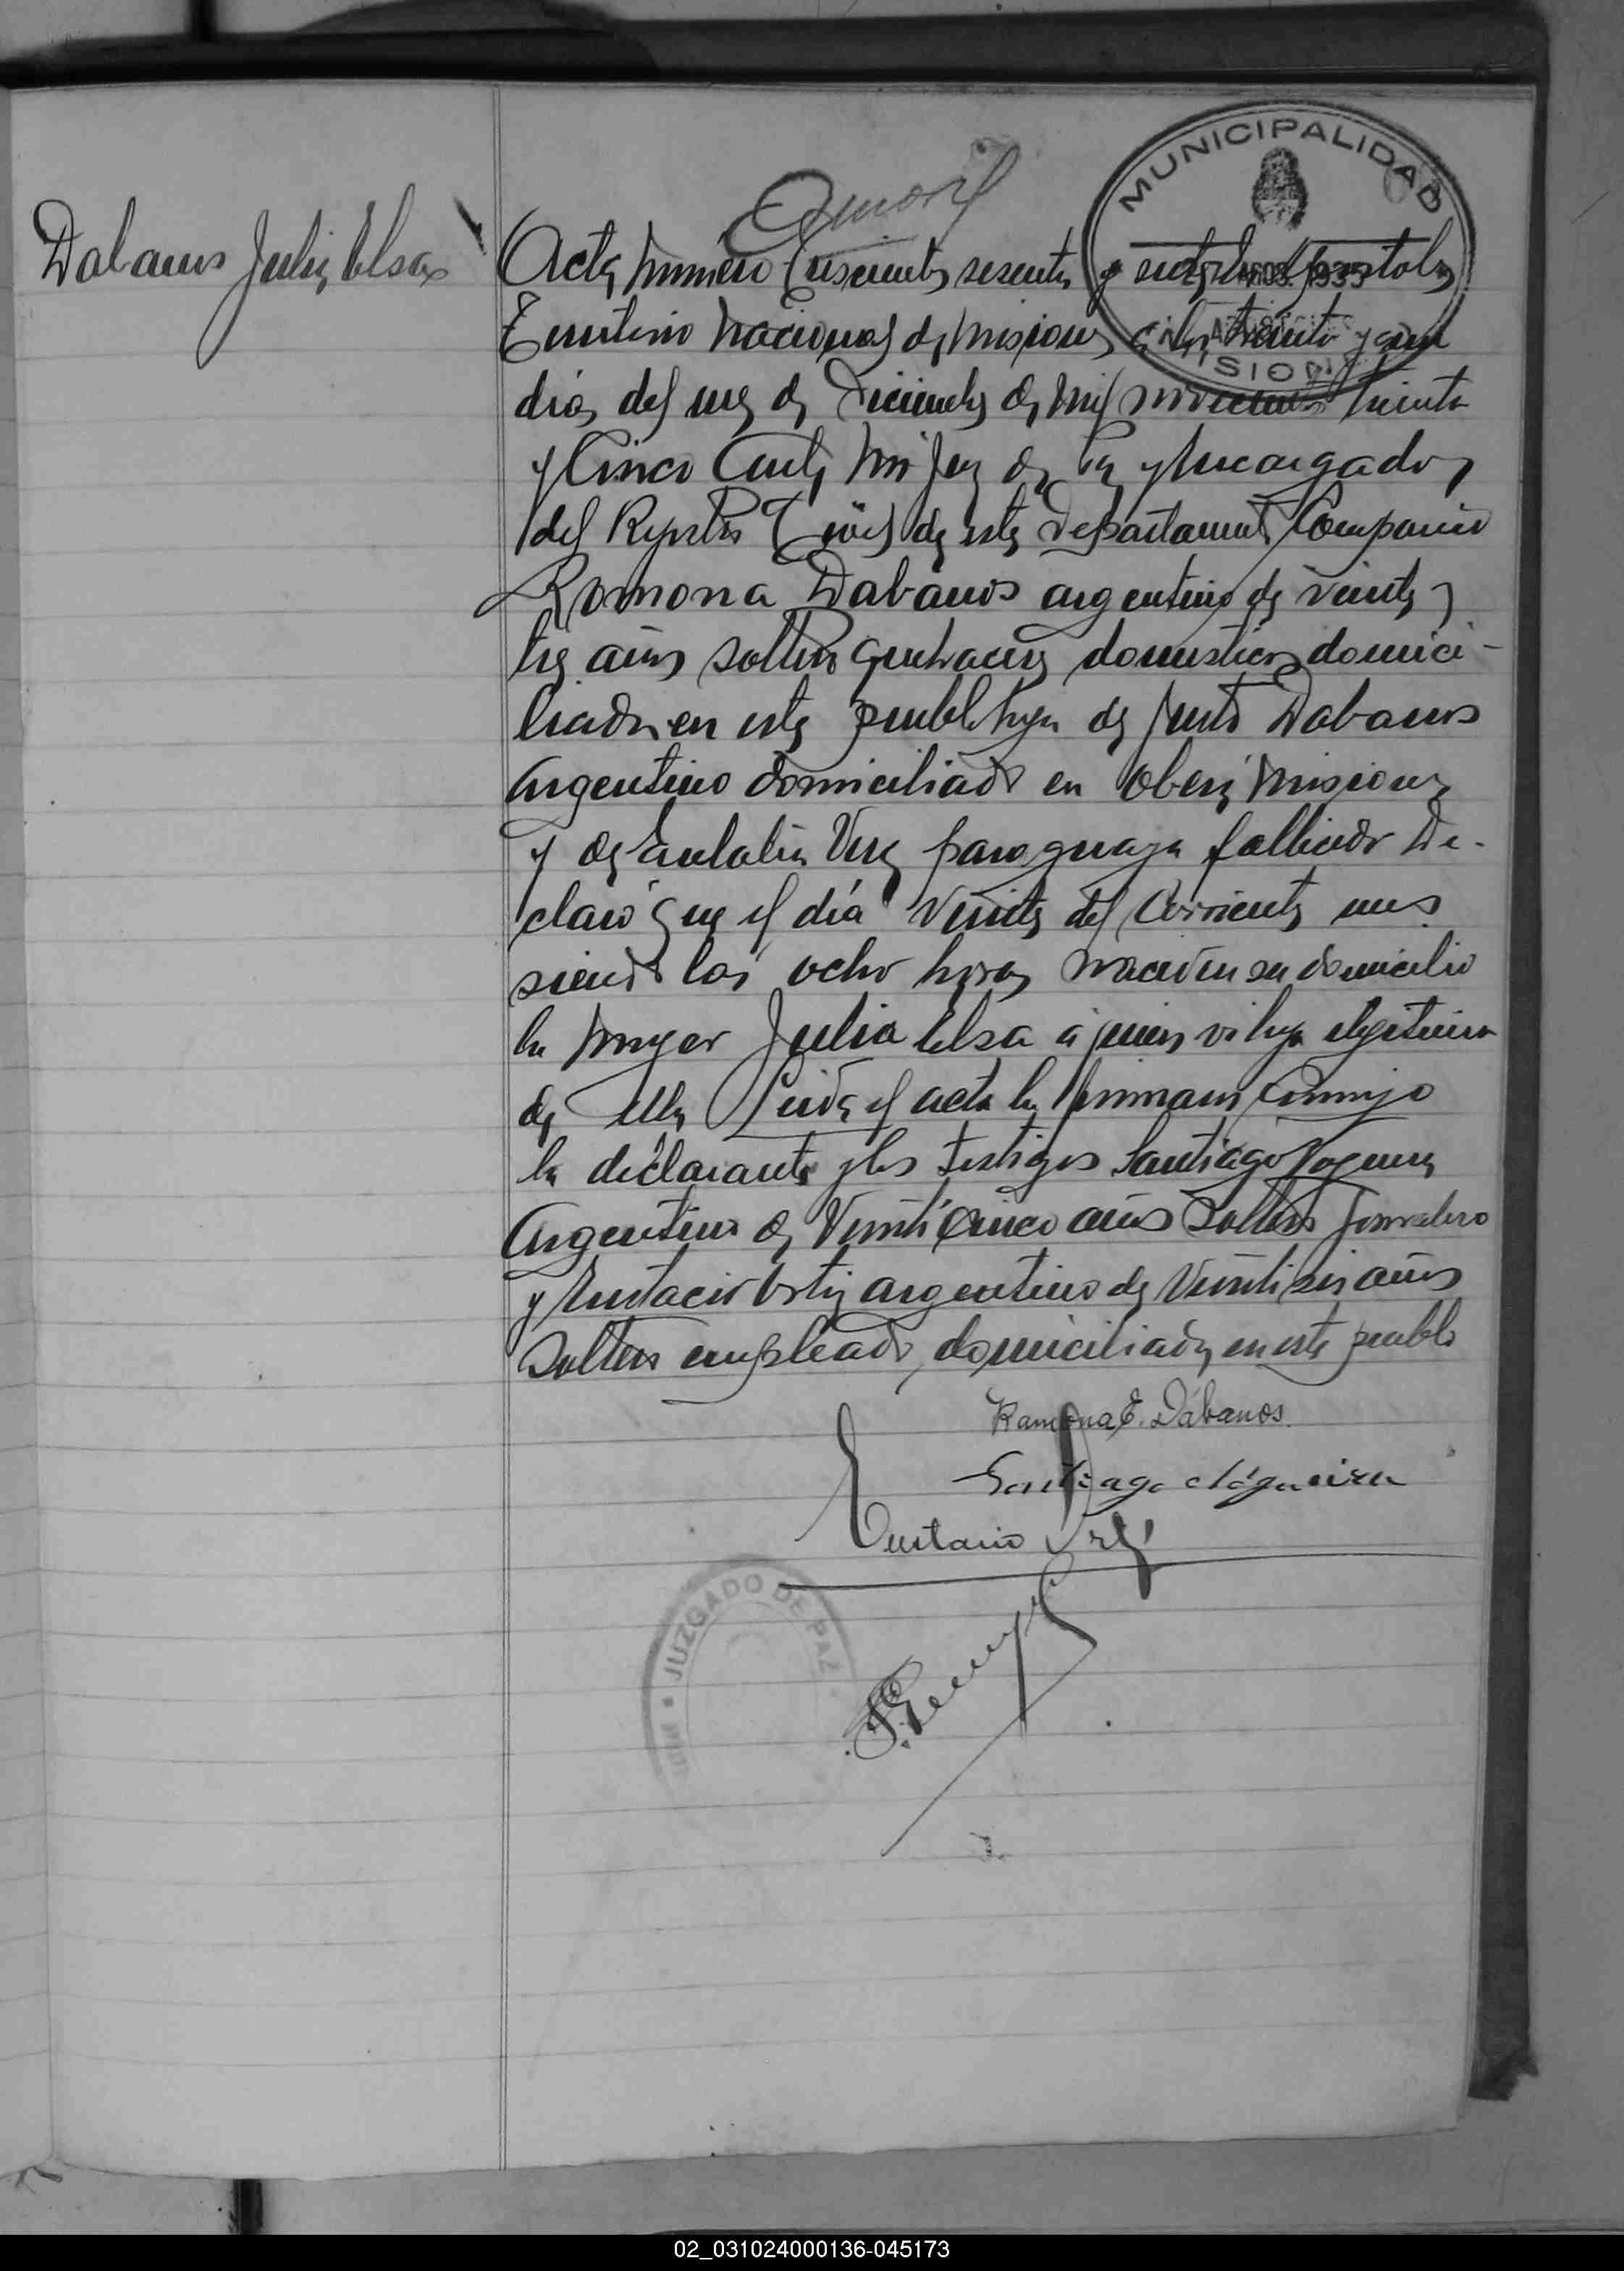 MUNICIPALIDAD
AGOS. 1935
MISIONES
Dabanos Julia Elsa
Acta número trescientos sesenta y Apostoles
Territorio Nacional de Misiones a los treinta y un
dias del mes de Diciembre de mil novecientos treinta
y Cinco Ante mi Juez de Paz y Encargado
del Registro Civil de este Departamento Compareció
Ramona Dabanos argentina de veinte y
tres años soltera quehaceres domesticos domici-
liada en este pueblo hija de Justo Dabanos
Argentino domiciliado en Oberá Misiones
y de Eulalia Vera paraguaya fallecida De-
claró que el día Veinte del Corriente mes
siendo las ocho horas nació en su domicilio
la mujer Julia Elsa a quien vi hija ilegitima
de ella Leida el acta la firmaron Conmigo
la declarante y los testigos Santiago Noguera
Argentino de Veinticinco años Soltero Jornalero
y Eustacio Ortiz argentino de Veintiseis años
Soltero empleado, domiciliados en este pueblo
Ramona E. Dábanos.
Santiago Nógueira
Eustacio
JUZGADO DE PAZ
02_031024000136-045173